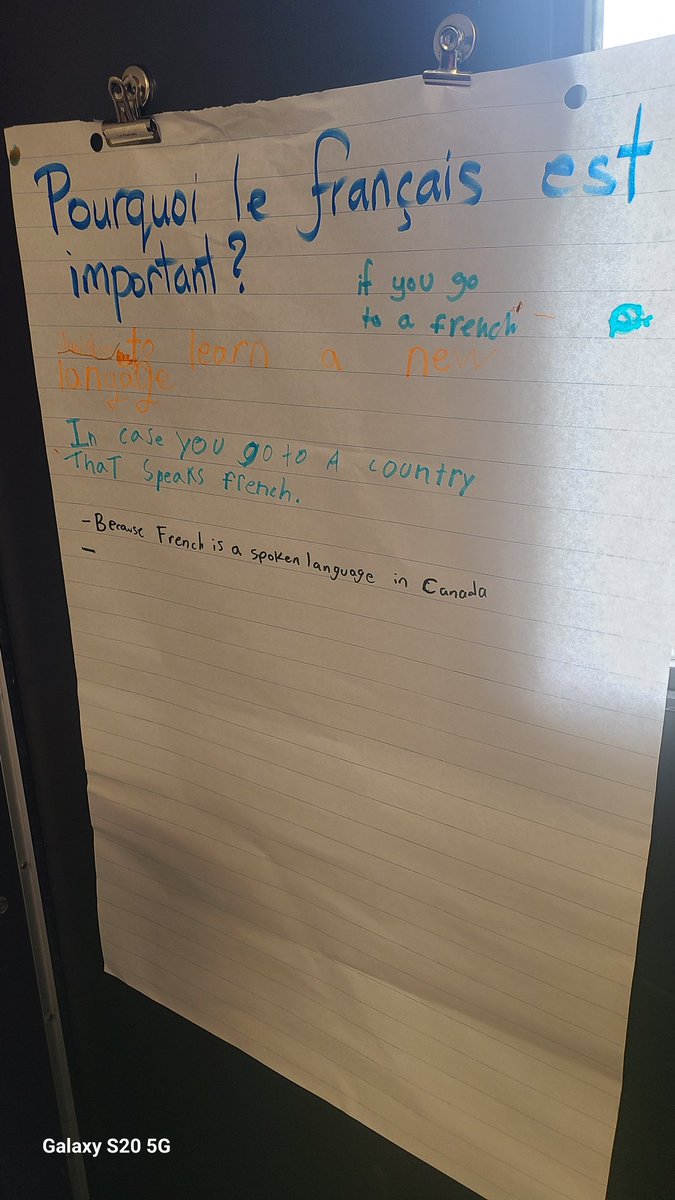 Pourquoi le français est
important?
if you go
to a french
to learn a new
langage
In case you go to A country
That speaks french.
- Because French is a spoken language in Canada
-
Galaxy S20 5G